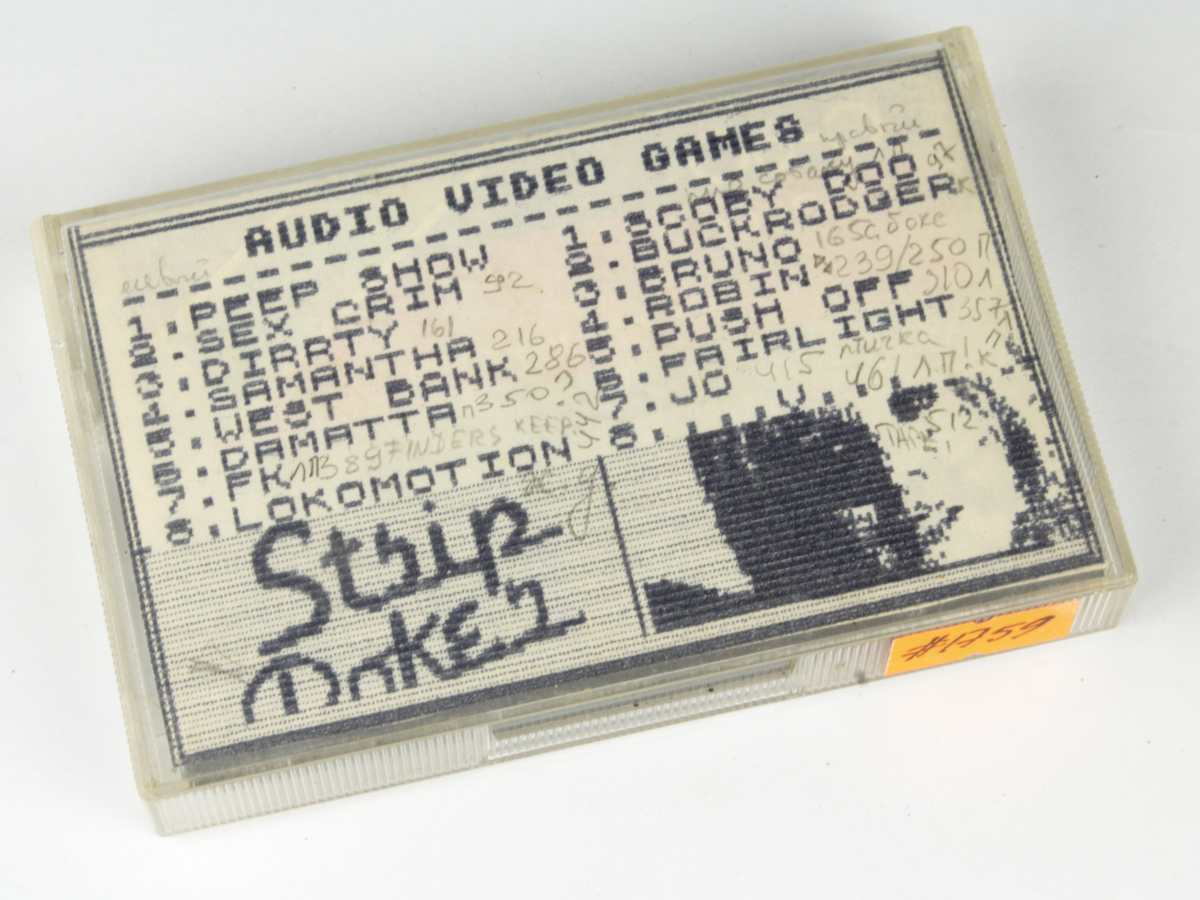 AUDIO VIDEO GAMES
левый
1. PEEP SHOW
2. SEX CRIM 92
3. DIRRTY 161
4. SAMANTHA 216
5. WEST BANK 286
6. DAMATTA п350?
7. FK ЛП389 FINDERS KEEP
8. LOKOMOTION 442
правый
1. SCOBY DOO 97
2. BUCKRODGER К
165сабоке
3. BRUNO 239/250 П
4. ROBIN 310 л
5. PUSH OFF 357л
6. FAIRLIGHT птичка
7. JO 415 461 ЛП!К
8. 512
Strip
Poker 2
#1759